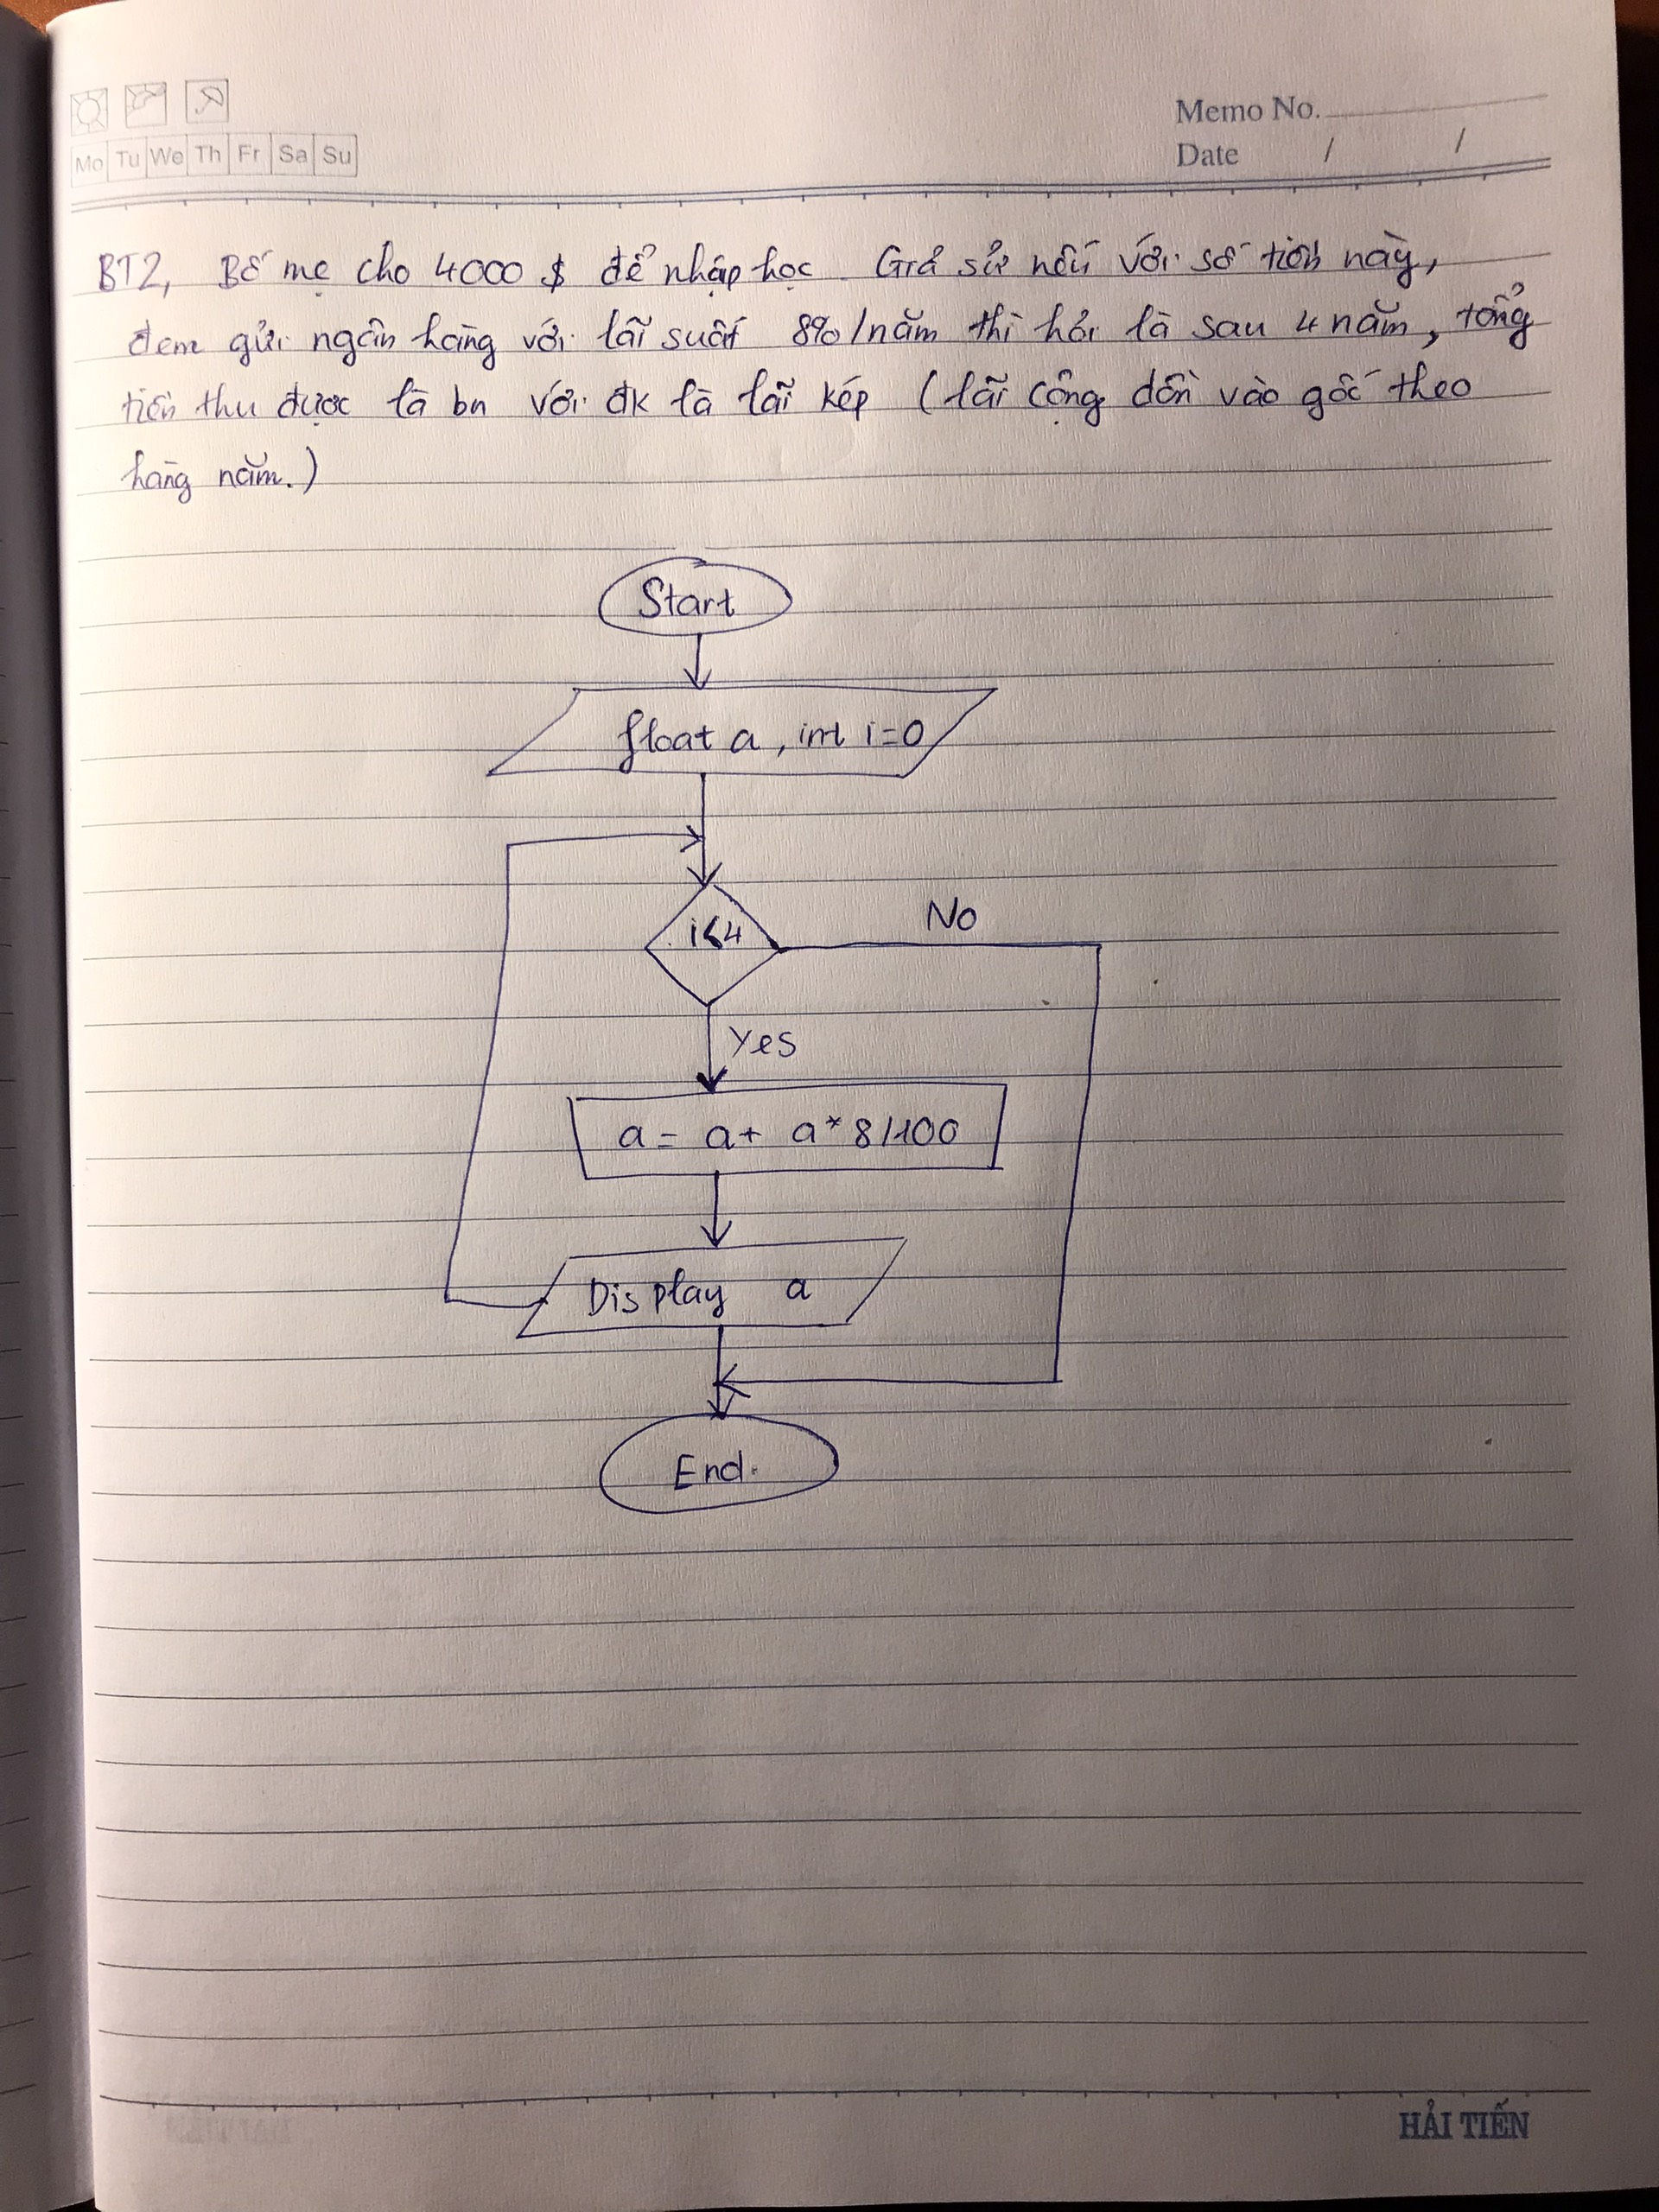 Memo No.
Mo Tu We Th Fr Sa Su
Date / /
BT2, Bố mẹ cho 4000 $ để nhập học. Giả sử nếu với số tiền này,
đem gửi ngân hàng với lãi suất 8%/năm thì hỏi là sau 4 năm, tổng
tiền thu được là bn với đk là lãi kép (lãi cộng dồn vào gốc theo
hàng năm.)
Start
float a, int i=0
i<4
No
Yes
a = a + a * 8/100
Display a
End.
HẢI TIẾN